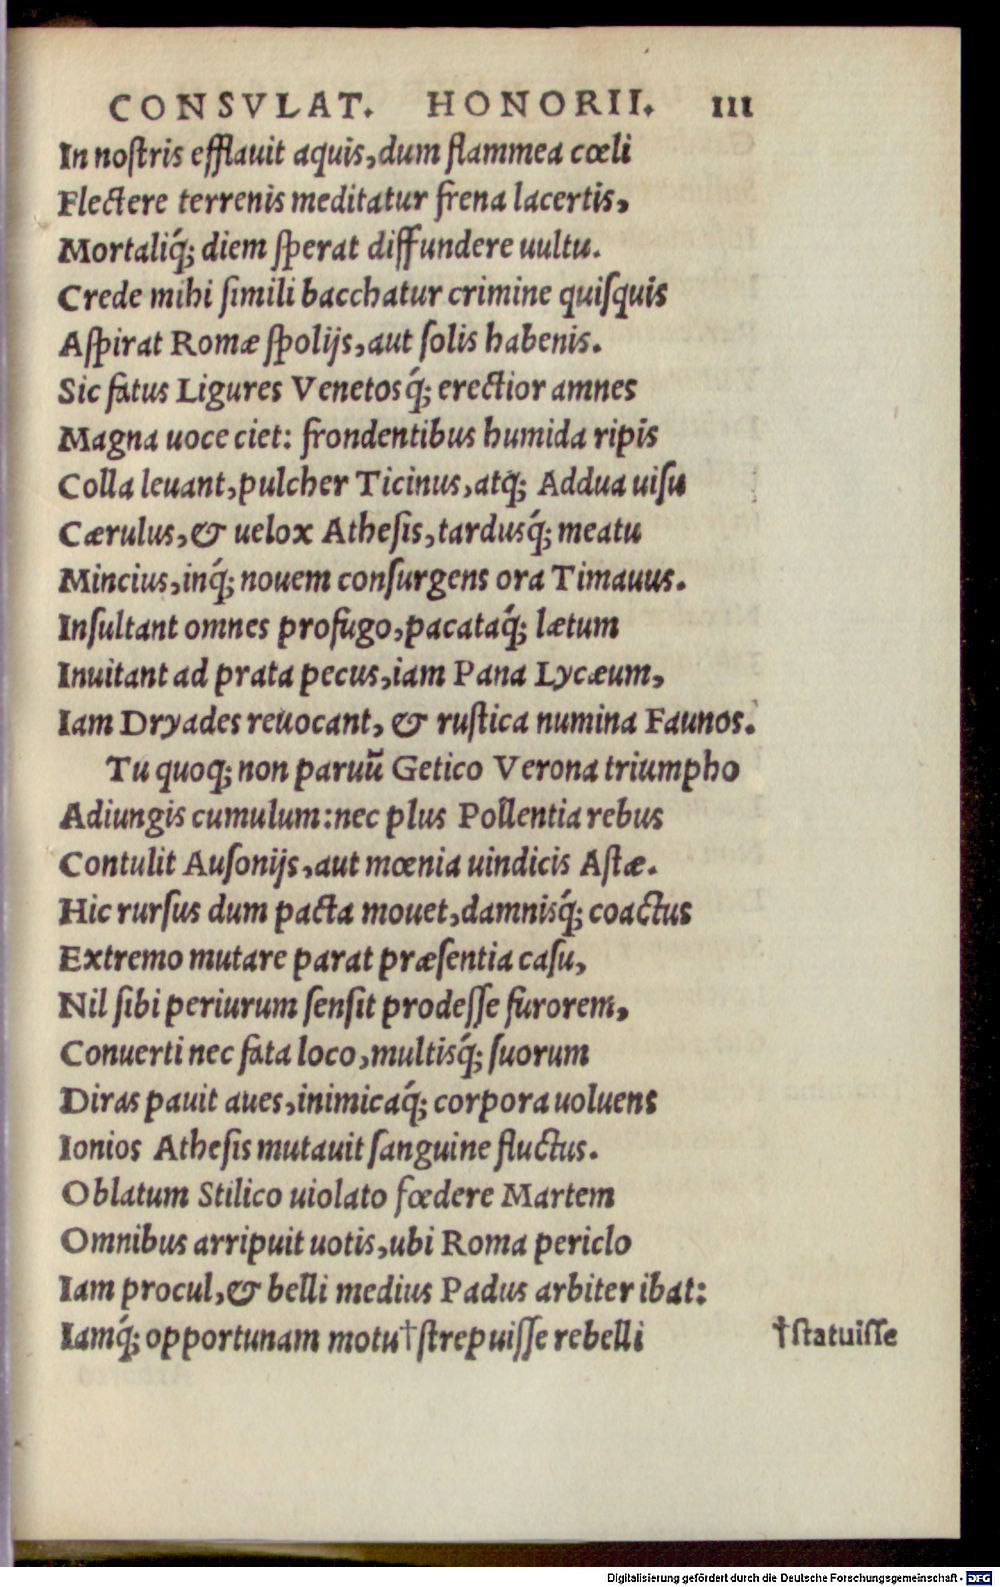 CONSVLAT. HONORII. 111
In nostris efflauit aquis, dum flammea cœli
Flectere terrenis meditatur frena lacertis,
Mortaliq́; diem sperat diffundere uultu.
Crede mihi simili bacchatur crimine quisquis
Aspirat Romæ spolijs, aut solis habenis.
Sic fatus Ligures Venetosq́; erectior amnes
Magna uoce ciet: frondentibus humida ripis
Colla leuant, pulcher Ticinus, atq́; Addua uisu
Cærulus, & uelox Athesis, tardusq́; meatu
Mincius, inq́; nouem consurgens ora Timauus.
Insultant omnes profugo, pacataq́; lætum
Inuitant ad prata pecus, iam Pana Lycæum,
Iam Dryades reuocant, & rustica numina Faunos.
Tu quoq; non paruū Getico Verona triumpho
Adiungis cumulum: nec plus Pollentia rebus
Contulit Ausonijs, aut mœnia uindicis Astæ.
Hic rursus dum pacta mouet, damnisq́; coactus
Extremo mutare parat præsentia casu,
Nil sibi periurum sensit prodesse furorem,
Conuerti nec fata loco, multisq́; suorum
Diras pauit aues, inimicaq́; corpora uoluens
Ionios Athesis mutauit sanguine fluctus.
Oblatum Stilico uiolato fœdere Martem
Omnibus arripuit uotis, ubi Roma periclo
Iam procul, & belli medius Padus arbiter ibat:
Iamq́; opportunam motu †strepuisse rebelli †statuisse
Digitalisierung gefördert durch die Deutsche Forschungsgemeinschaft - DFG